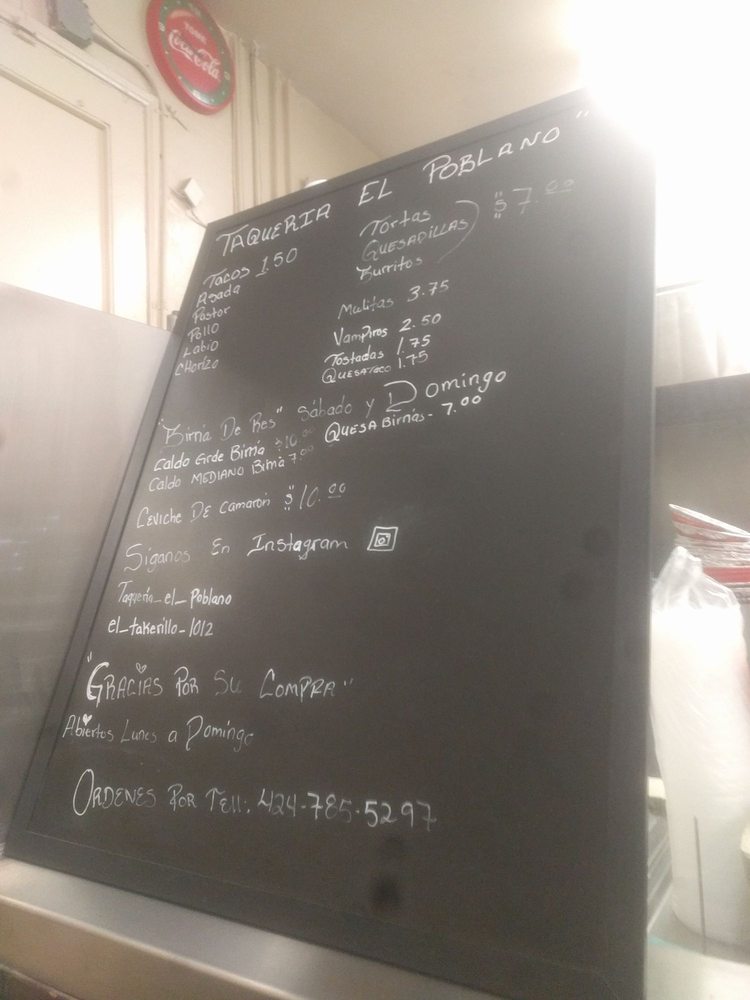 Coca-Cola
TAQUERIA EL POBLANO"
Tacos 1.50
Asada
Pastor
Pollo
Labio
CHorizo
Tortas
QUESADILLAS
Burritos
"$" 7.00
Mulitas 3.75
Vampiros 2.50
Tostadas 1.75
QUESATaco 1.75
"Birria De Res" Sábado y Domingo
Caldo Grde Birria $10.00
QUESA Birrias - 7.00
Caldo MEDIANO Birria 7.00
Ceviche DE Camaron "$" 10.00
Siganos En Instagram
Taqueria_el_Poblano
el_takerillo_1012
"GRACIAS POR SU COMPRA"
Abiertos Lunes a Domingo
ORDENES POR TEll: 424-785-5297